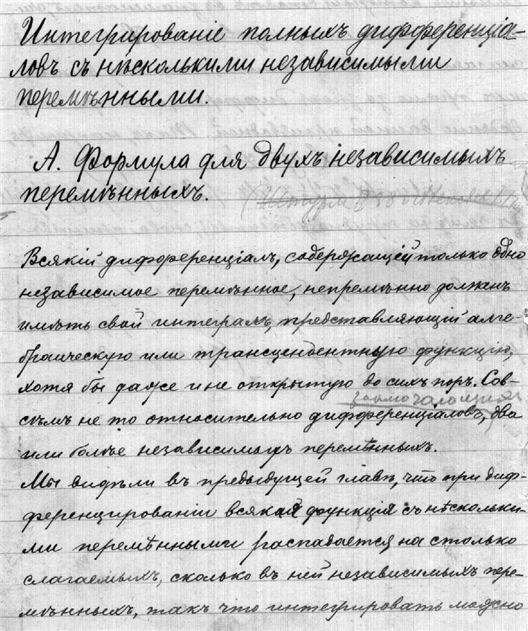 Интегрированіе полныхъ дифференціа-
ловъ съ нѣсколькими независимыми
перемѣнными.
А. Формула для двухъ независимыхъ
перемѣнныхъ.
Всякій дифференціалъ, содержащій только одно
независимое перемѣнное, непремѣнно долженъ
имѣть свой интегралъ, представляющій алге-
браическую или трансцендентную функцію,
хотя бы даже и не открытую до сихъ поръ. Сов-
сѣмъ не то относительно дифференціаловъ, два
или болѣе независимыхъ перемѣнныхъ.
Мы видѣли въ предыдущей главѣ, что при диф-
ференцированіи всякая функція съ нѣскольки-
ми перемѣнными распадается на столько
слагаемыхъ, сколько въ ней независимыхъ пере-
мѣнныхъ, такъ что интегрировать можно